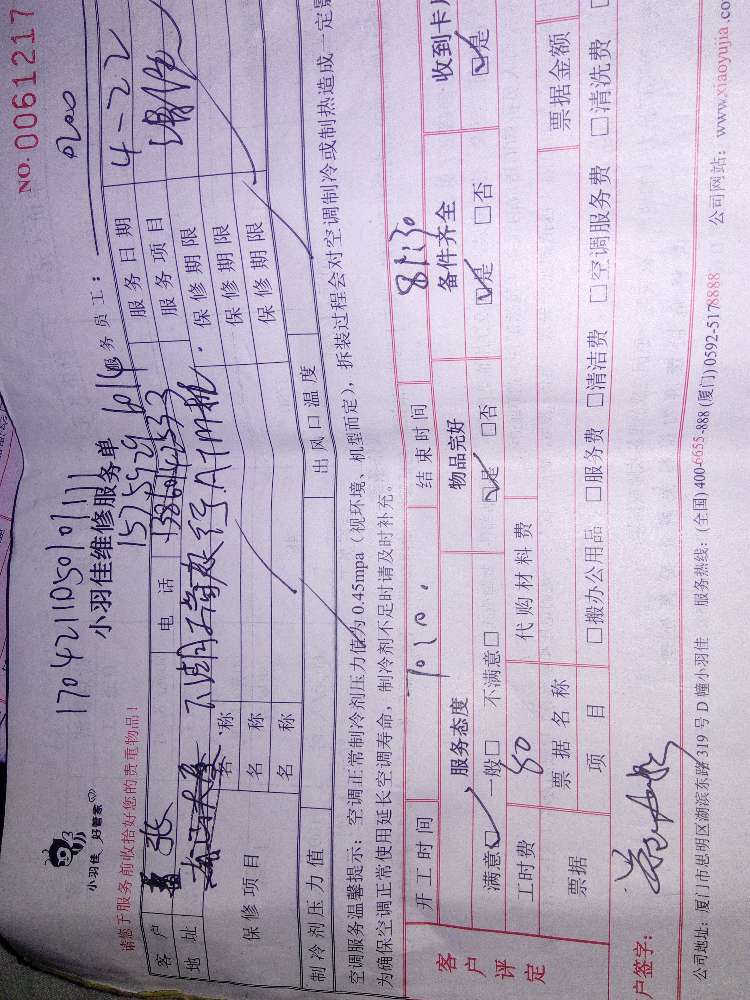 NO. 0061217
170421105010111
小羽佳 好管家
小羽佳维修服务单
请您于服务前收拾好您的贵重物品!
服务员工: 0200
客户 张 电话 服务日期 4-22
15860142533
地址 服务项目
保修项目 名称 保修期限
名称 保修期限
名称 保修期限
制冷剂压力值 出风口温度
空调服务温馨提示: 空调正常制冷剂压力值为0.45mpa(视环境、机型而定), 拆装过程会对空调制冷或制热造成一定影
为确保空调正常使用延长空调寿命, 制冷剂不足时请及时补充。
开工时间 结束时间 8:30
客户评定 服务态度 物品完好 备件齐全 收到卡片
满意□ 一般□ 不满意□ □是 □否 □是 □否 □是
工时费 80 代购材料费
票据 票据名称 票据金额
项目 □搬办公用品 □服务费 □清洁费 □空调服务费 □清洗费
户签字:
公司地址: 厦门市思明区湖滨东路319号D幢小羽佳 服务热线: (全国) 400-6655-888 (厦门) 0592-5178888 公司网站: www.xiaoyujia.co